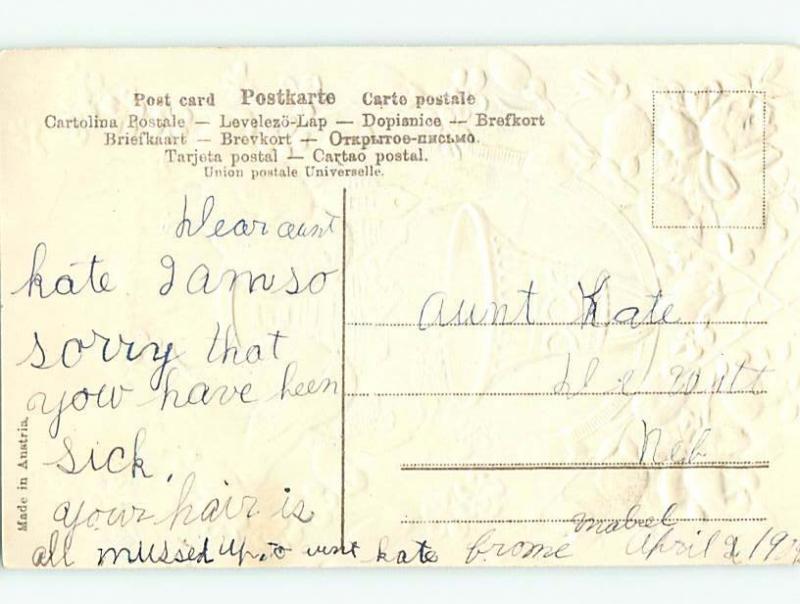 Post card Postkarte Carte postale
Cartolina Postale — Levelező-Lap — Dopisnice — Brefkort
Briefkaart — Brevkort — Открытое-письмо.
Tarjeta postal — Cartao postal.
Union postale Universelle.
Dear aunt
kate I am so
sorry that
yow have been
sick.
yowr hair is
all mussed up. to unt kate brome
mabel
April 2 19
Aunt Kate
De Witt
Neb
Made in Austria.